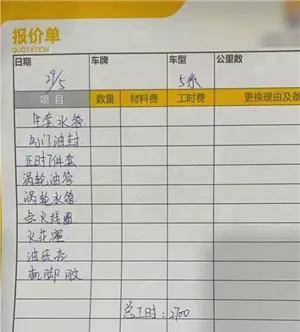 报价单
QUOTATION
日期 车牌 车型 公里数
29/5 5系
项目 数量 材料费 工时费 更换理由及备
全套水管
气门油封
正时7件套
涡轮油管
涡轮水管
点火线圈
火花塞
油底壳
机脚胶
总工时：2700